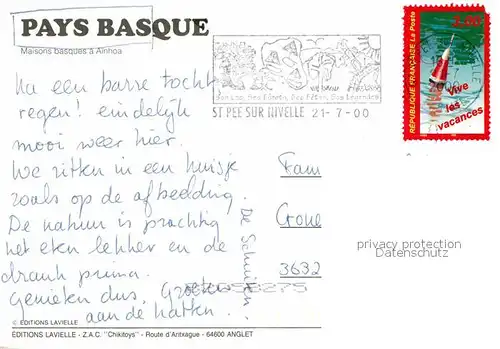 PAYS BASQUE
Maisons basques à Ainhoa
Na een barre tocht
regen! eindelijk
mooi weer hier.
We zitten in een huisje
zoals op de afbeelding.
De natuur is prachtig
het eten lekker en de
drank prima.
Genieten dus. Groeten
aan de hatten...
De Schuiten
ST PEE SUR NIVELLE 21-7-00
RÉPUBLIQUE FRANÇAISE La Poste
3,00
Vive
les
vacances
Fam
Crone
3632
privacy protection
Datenschutz
© EDITIONS LAVIELLE
ÉDITIONS LAVIELLE - Z.A.C. "Chikitoys" - Route d'Antxague - 64600 ANGLET